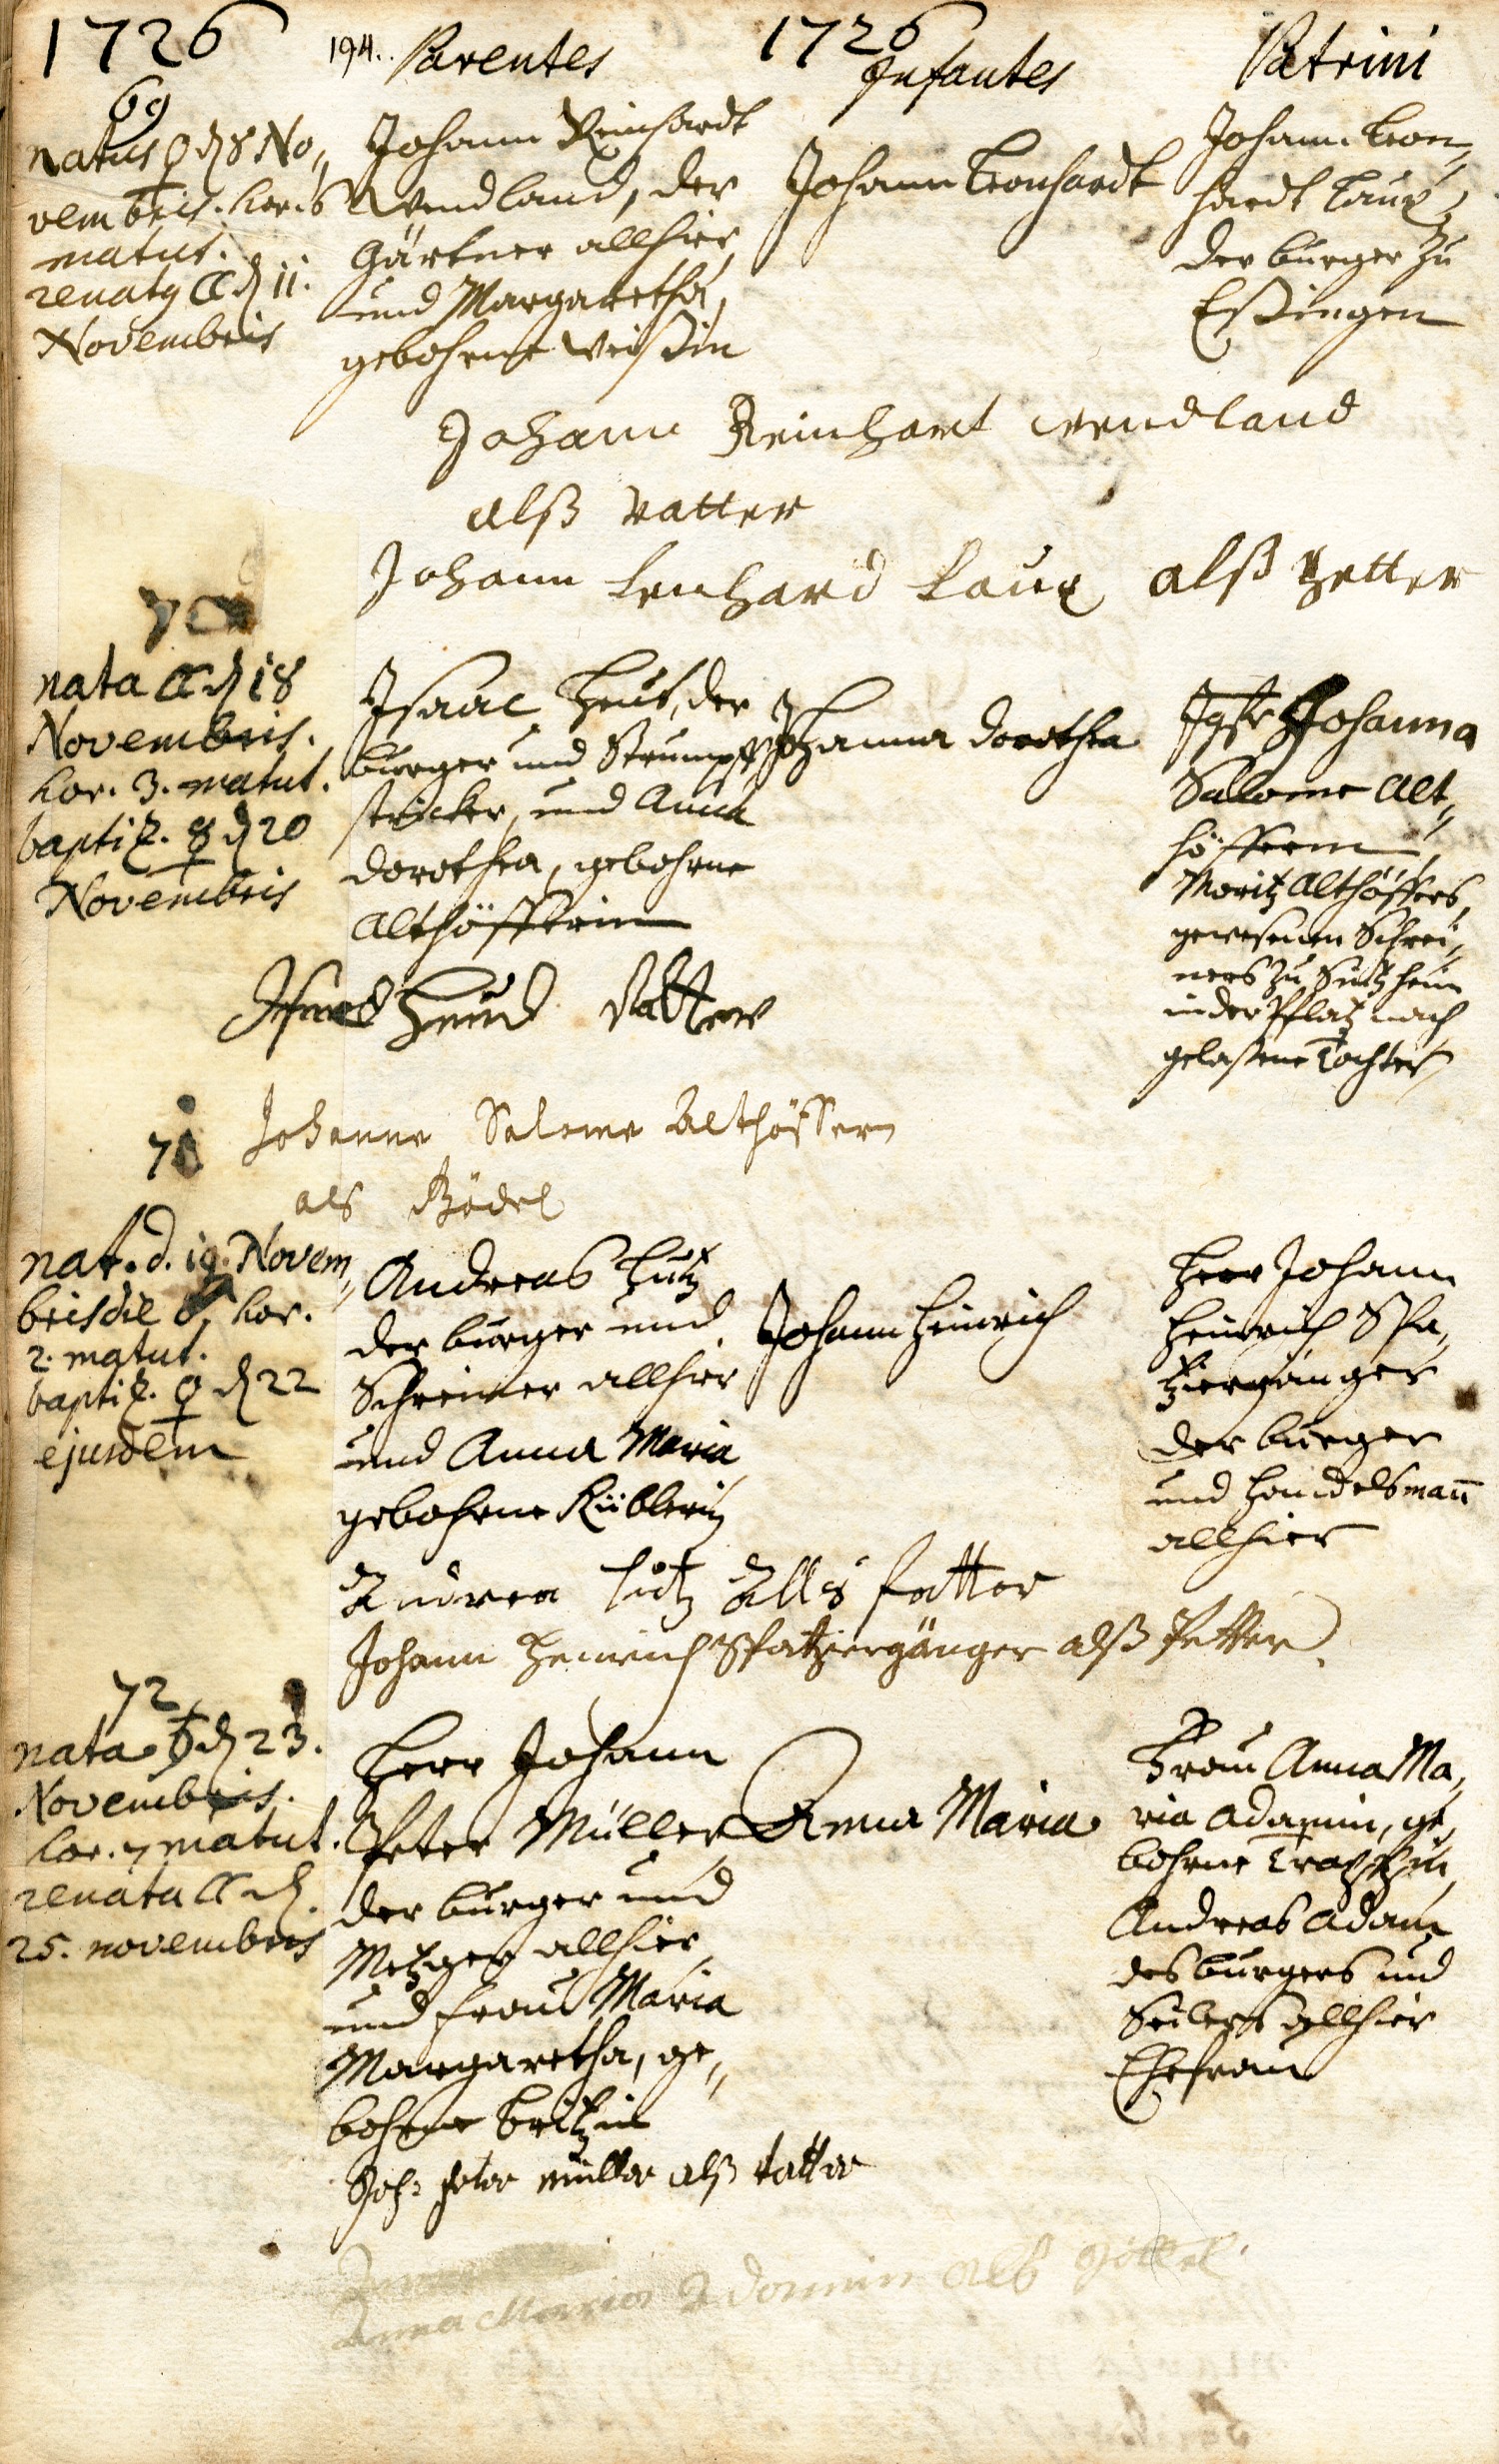 1726
194. Parentes
1726
Infantes
Patrini
69
natus ♀ d 8 No„
vembris. hor. 6
matut.
renatq ☾ d 11.
Novembris
Johann Reinhardt
Wendland, der
Gärtner allhier,
und Margaretha,
gebohrne Weißin
Johann Leonhardt
Johann Leon„
hardt Laux,
der burger zu
Eßingen
Johann Reinhart wendland
alß vatter
Johann Lenhard Laux alß petter
70
nata ☾ d 18
Novembris.
hor. 3. matut.
baptiz. ☿ d 20
Novembris
Isaac Heut, der
burger und Strumpff
stricker, und Anna
Dorothea, gebohrne
Althöfferin
Johanna Dorothea
Jgfr Johanna
Salome Alt„
höfferin,
Moritz Althöffers,
gewesenen Schrei„
ners zu
in der Pfaltz nach
gelaßene Tochter
Isaac Heud Vatter
71
Johanna Salome Althöffern
als Gödel
nat. d. 19. Novem„
bris die ♂ hor.
2. matut.
baptiz. ♀ d 22
ejusdem
Andreas Lutz
der burger und
Schreiner allhier
und Anna Maria
gebohrne Küblerin
Johann Heinrich
Herr Johann
Heinrich Spa„
tziergänger
der burger
und Handelsmañ
allhier
Andrea lutz Alls fatter
Johann Heinrich Spatziergänger alß Petter.
72
nata ♄ d 23.
Novembris.
hor. 7 matut.
renata ☾ d.
25. novembris
Herr Johann
Peter Müller
der burger und
Metzger allhier
und Frau Maria
Margaretha, ge„
bohrne Britzin
Anna Maria
Frau Anna Ma„
ria Adamin, ge„
bohrne Tratzin,
Andreas Adam
des burgers und
Seilers allhier
Ehefrau
Joh: peter müller alß vatter
Anna Maria Adamin als göttel.